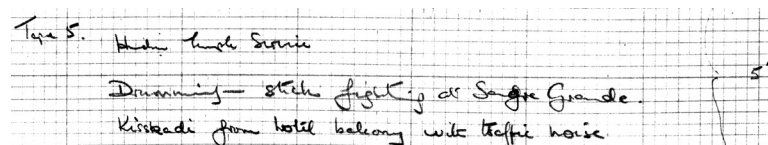 Tape 5. Hindu temple Service
Drumming - stick fighting at Sangre Grande. 5"
Kisskadi from hotel balcony with traffic noise